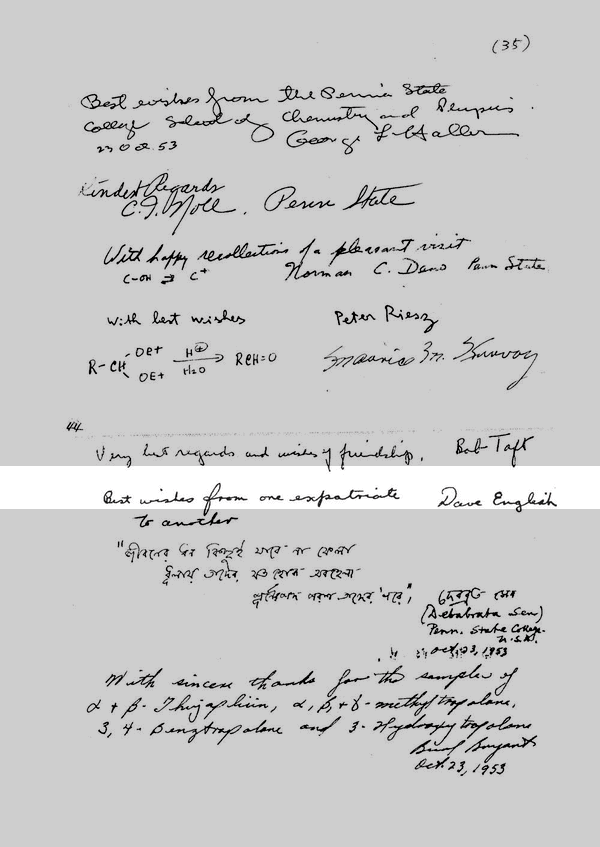 (35)
Best wishes from the Penna State
College School of Chemistry and Physics.
23 Oct. 53 George L. Haller
Kindest Regards
C. I. Noll. Penn State
With happy recollections of a pleasant visit
C-OH ⇌ C+ Norman C. Deno Penn State
With best wishes Peter Riesz
R-CH OEt OEt H⊕ H2O → RCH=O
44
Very best regards and wishes of friendship. Bob Taft
Best wishes from one expatriate Dave English
to another
"জীবনের ধন কিছুই যাবে না ফেলা
ধূলায় তাদের যত হোক অবহেলা
পূর্ণের পদ পরশ তাদের 'পরে",
দেবব্রত সেন
(Debabrata Sen)
Penn. State College.
U.S.A.
Oct 23, 1953
With sincere thanks for the sample of
α + β- Thujaplicin, α, β, + γ- methyl tropolone,
3, 4- Benztropolone and 3- Hydroxytropolone
Bryant
Oct. 23, 1953